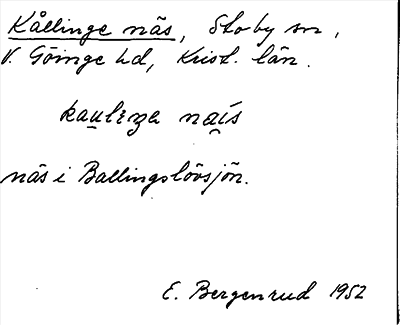 Kållinge näs, Stoby sn,
V. Göinge hd, Krist. län.
näs i Ballingslövsjön.
E. Bergenrud 1952